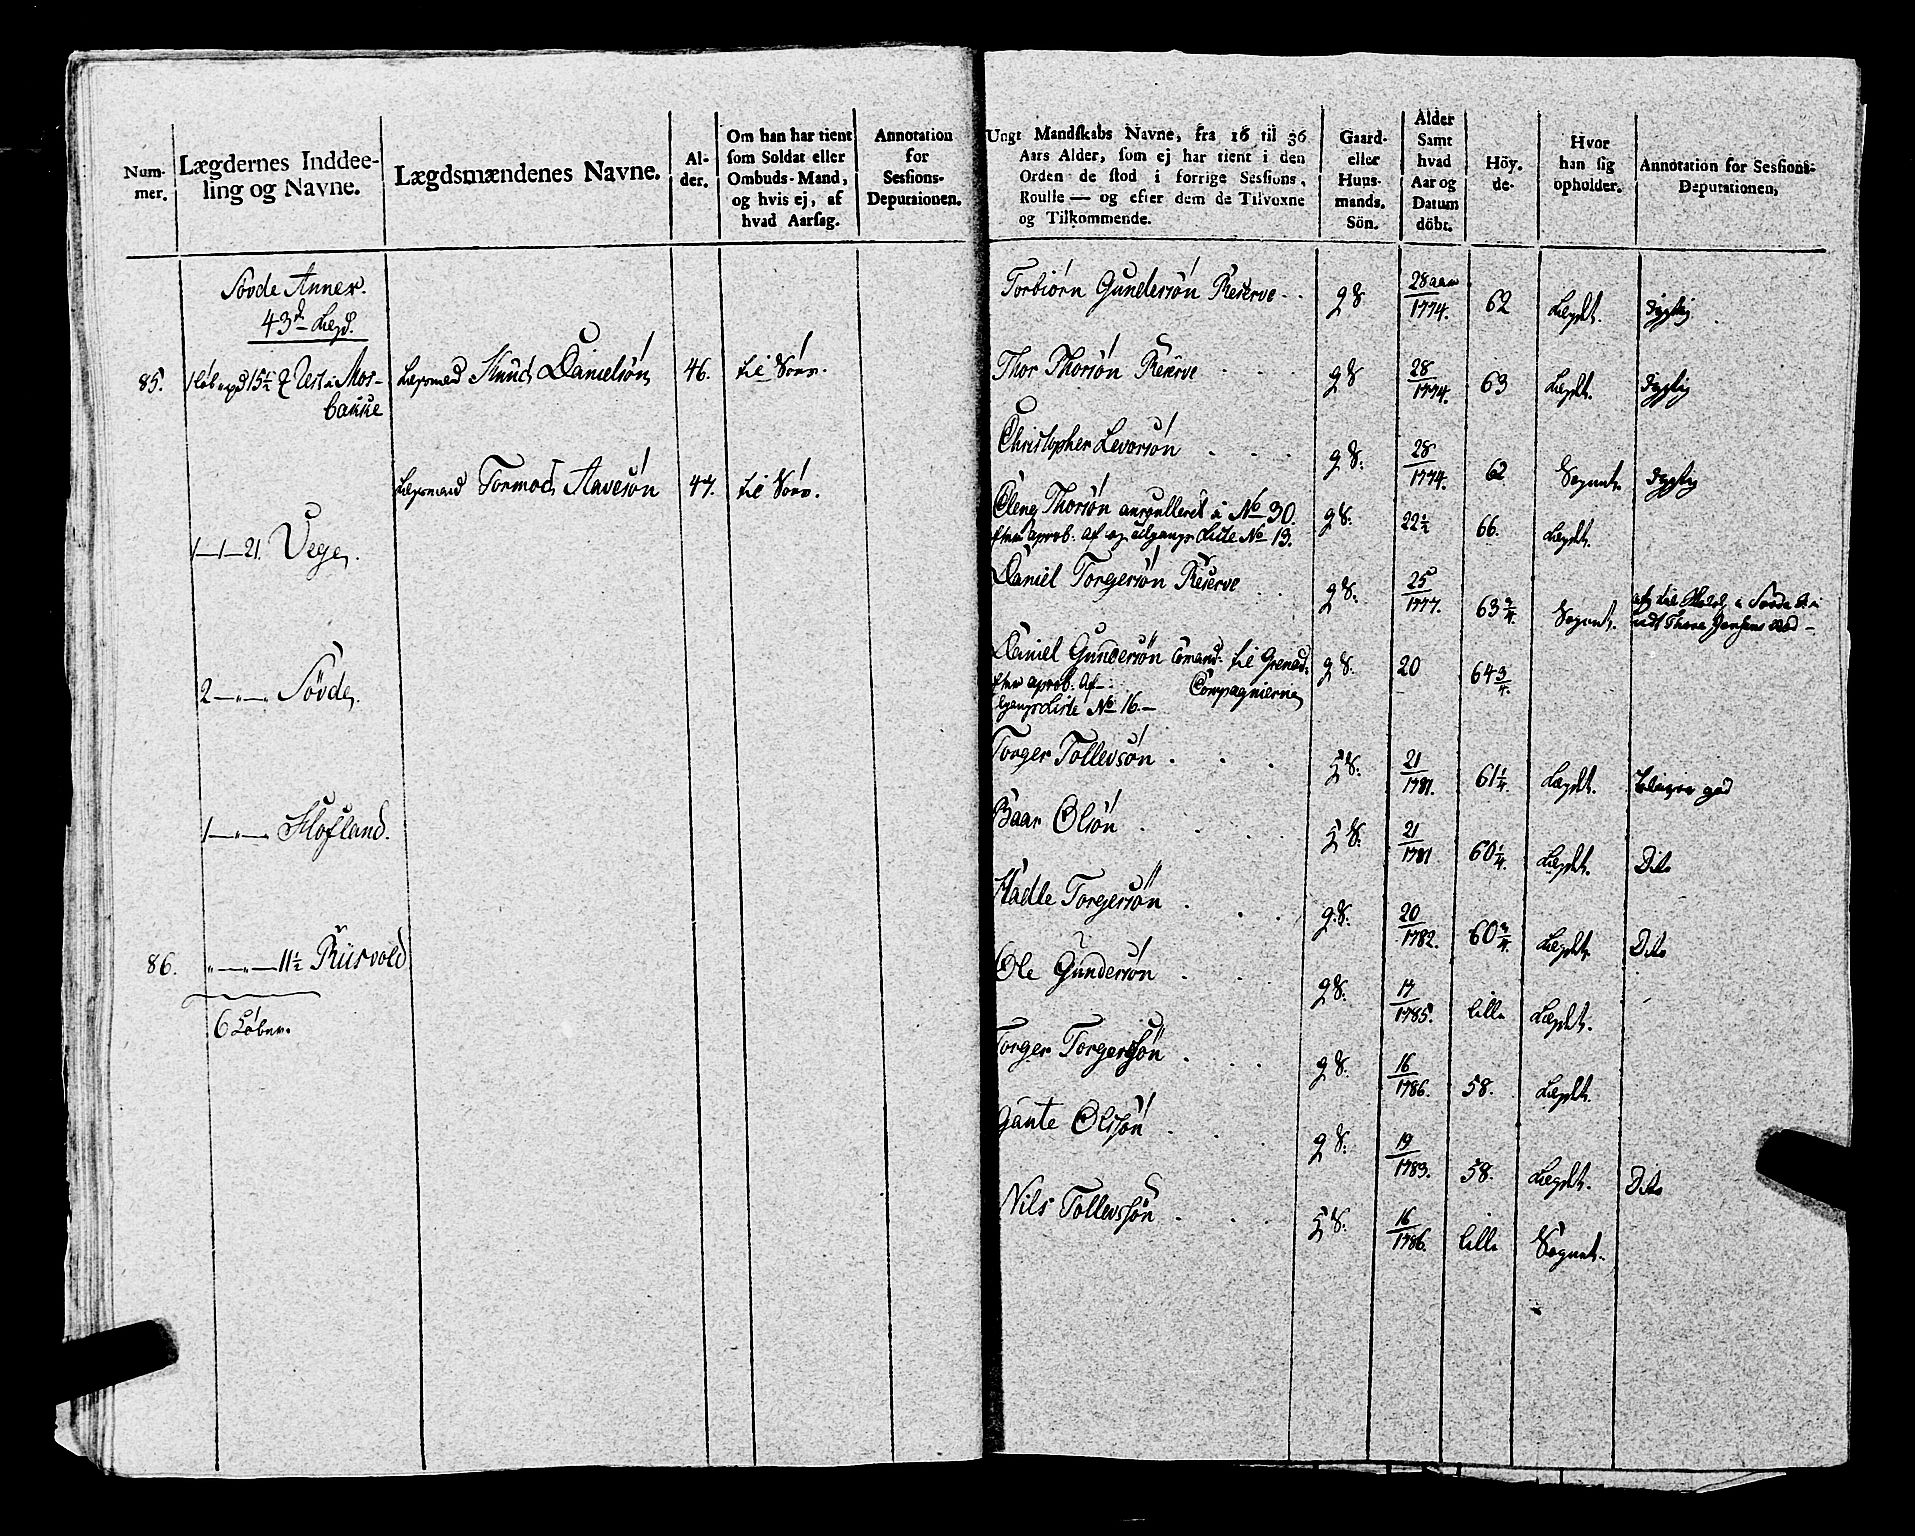 Num-
mer.
Lægdernes Inddee-
ling og Navne.
Lægdsmændenes Navne.
Al-
der.
Om han har tient
som Soldat eller
Ombuds-Mand,
og hvis ej, af
hvad Aarsag.
Annotation
for
Sessions-
Deputationen.
Søvde Annex.
43d Lægd.
85.
Mos-
bakke
Lægsmand Knud Danielsøn
46.
til Sövs.
Lægsmand Tormod Aavesøn
47.
til Sövs.
1—1—21. Vege.
2—„—„ Søvde.
1—„—„ Hofland.
86.
„—„—11½ Riisvold
6 Løber.
Ungt Mandskabs Navne, fra 16 til 36
Aars Alder, som ej har tient i den
Orden de stod i forrige Sessions-
Roulle — og efter dem de Tilvoxne
og Tilkommende.
Gaard-
eller
Huus-
mands-
Sön.
Alder
Samt
hvad
Aar og
Datum
döbt.
Höy-
de.
Hvor
han sig
opholder.
Annotation for Sessions-
Deputationen,
Torbiørn Gundersøn Reserve
g S.
28 aar
1774.
62
Lægdet.
dygtig
Thor Thorsøn Reserve
g S
28
1774.
63
Lægdet.
dygtig
Christopher Levorsøn
g S.
28
1774.
62
Sognet.
dygtig
Eleng Thorsøn anroulleret i No 30.
g S.
22½
66.
Lægdet.
aprob. af og udgangs Liste No 13.
Daniel Torgersøn Reserve
g S.
25
1777.
63¾
Sognet.
Daniel Gundersøn Comand. til Grenad.
g S.
20
64¾
aprob. af Compagnierne
Liste No 16.—
Torger Tollevsøn
H S.
21
1781.
61¼
Lægdet.
god
Baar Olsøn
H S.
21
1781
60¼
Lægdet.
Dito
Hadle Torgersøn
g S.
20
1782.
60¾
Lægdet.
Dito
Ole Gundersøn
g S.
17
1785.
lille
Lægdet.
Torger Torgersøn
g S.
16
1786.
58.
Lægdet.
Gante Olssøn
g S.
19
1783.
58.
Lægdet.
Dito
Nils Tollevssøn
H S.
16
1786.
lille
Sognet.